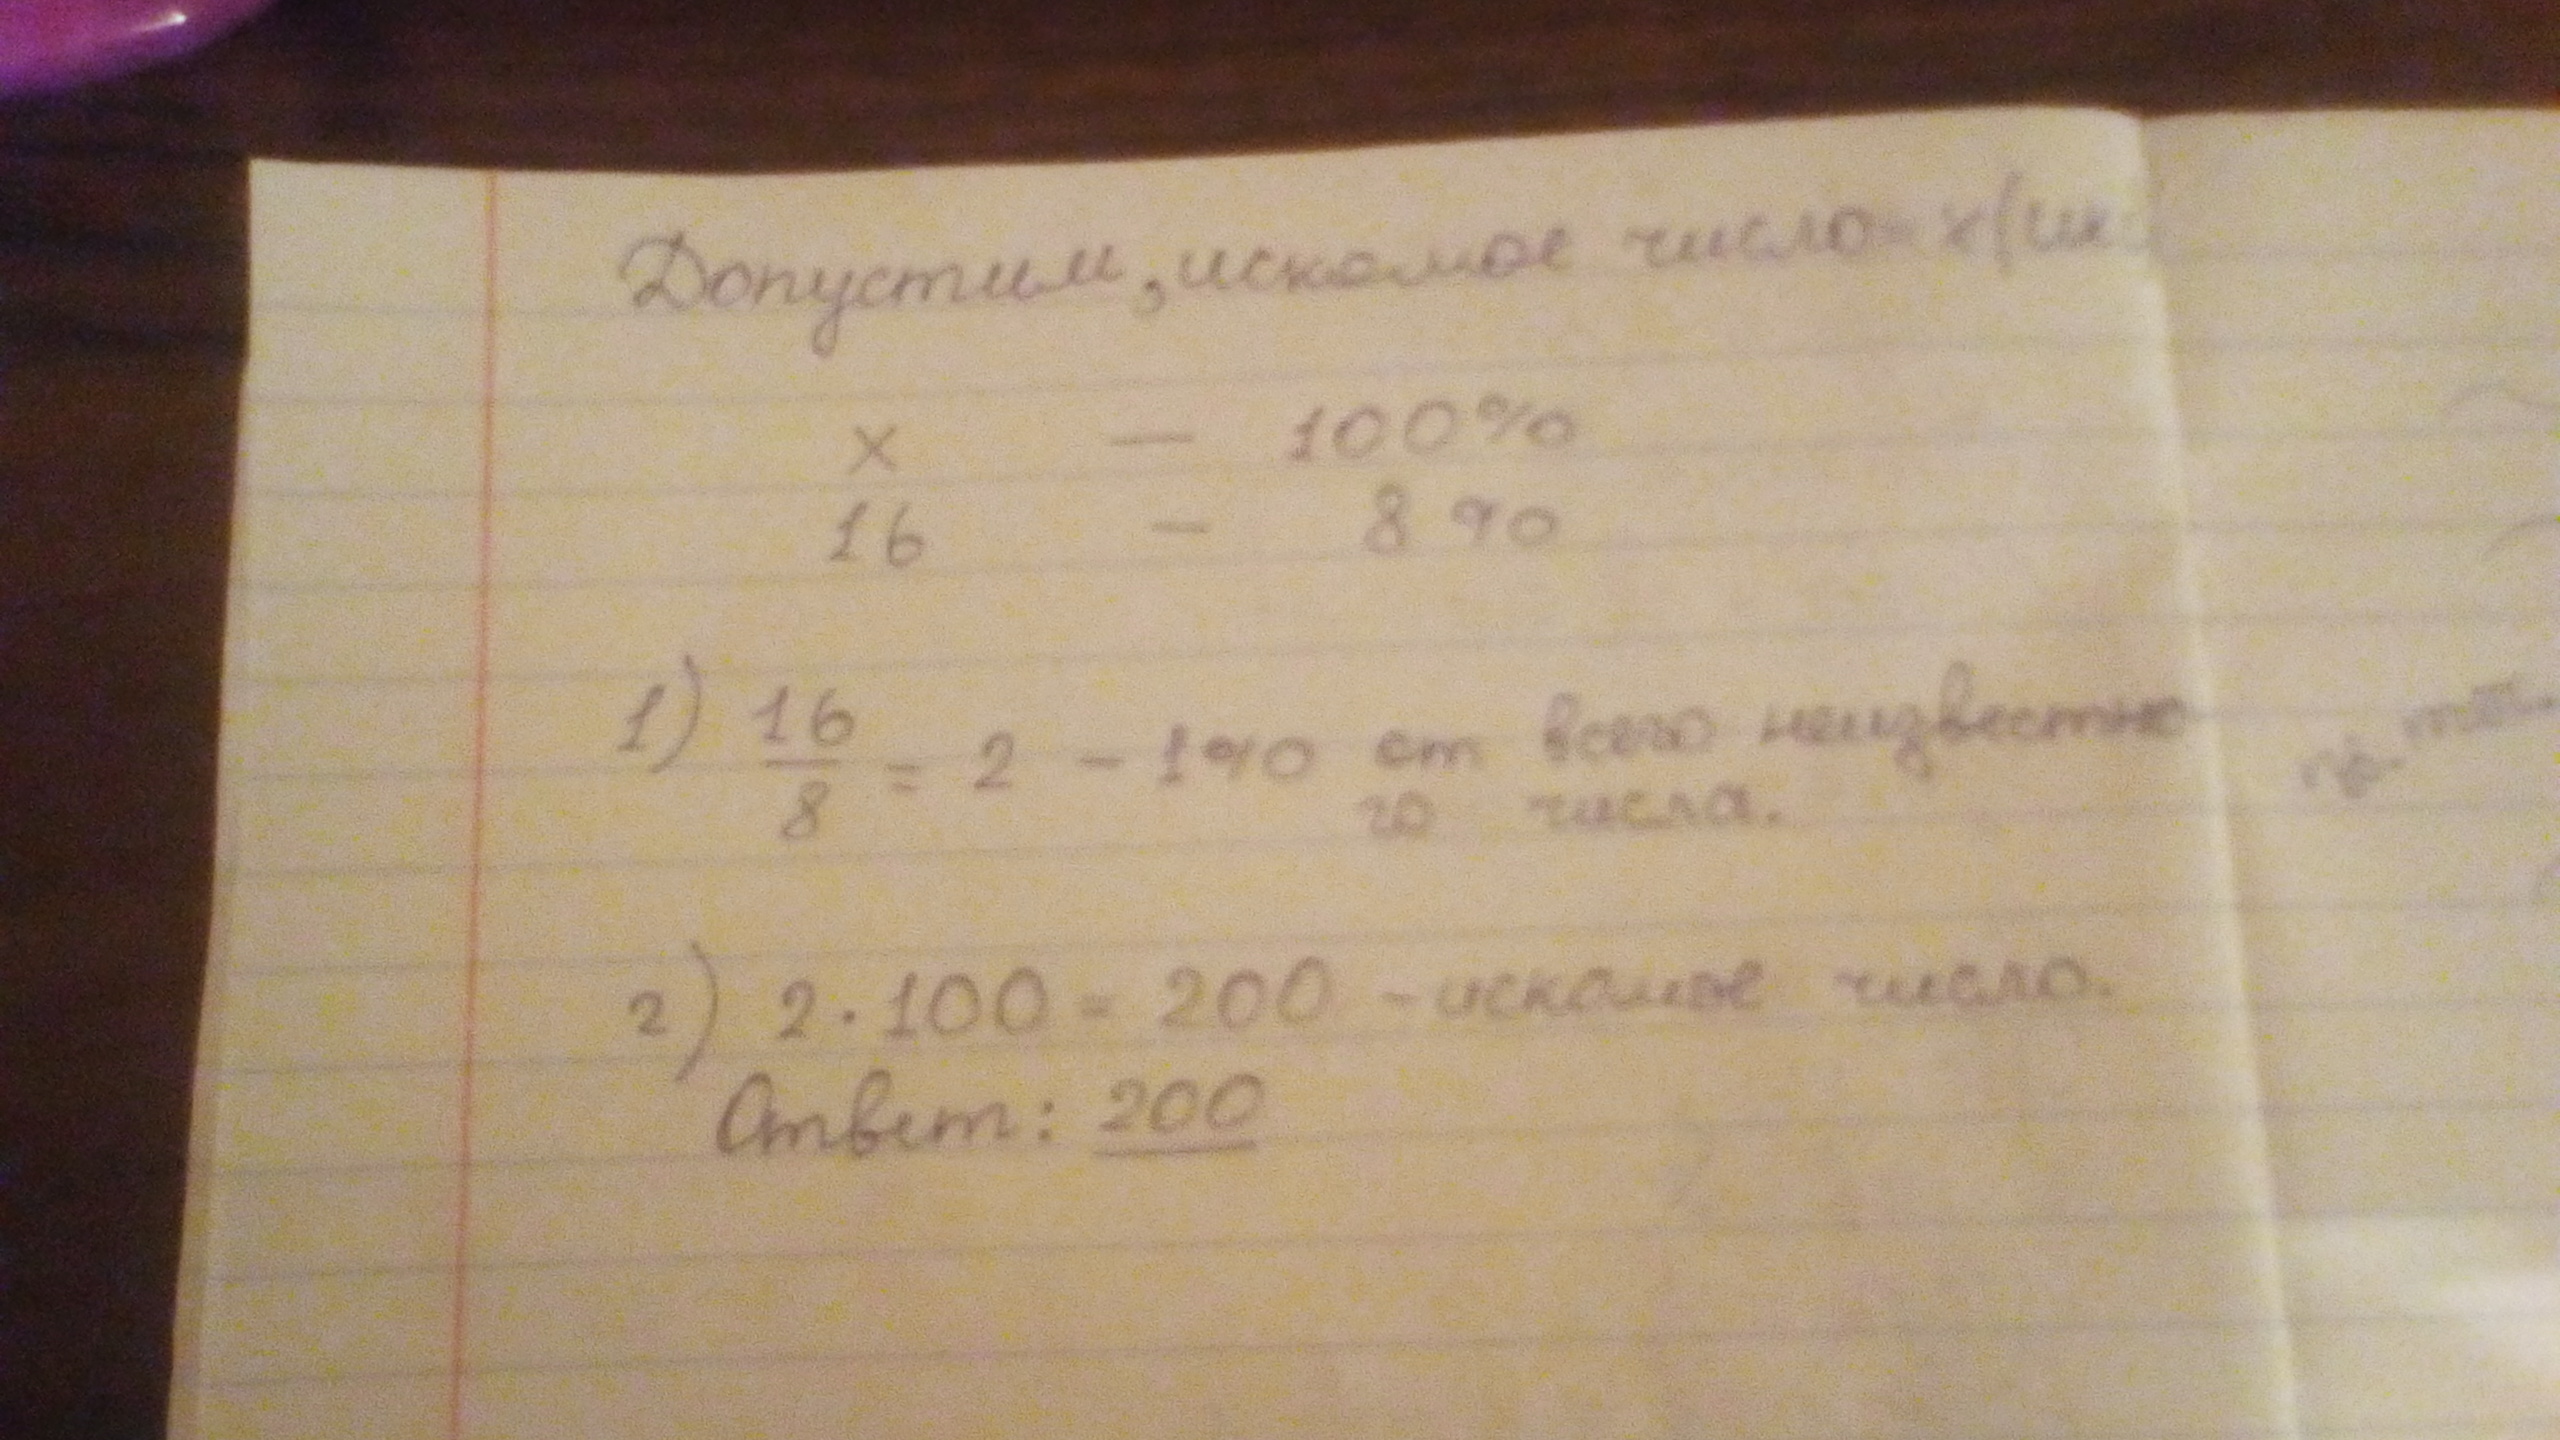 Допустим, искомое число - x
x — 100%
16 — 8%
1) 16/8 = 2 - 1% от всего неизвестно
го числа.
2) 2 · 100 = 200 - искомое число.
Ответ: 200